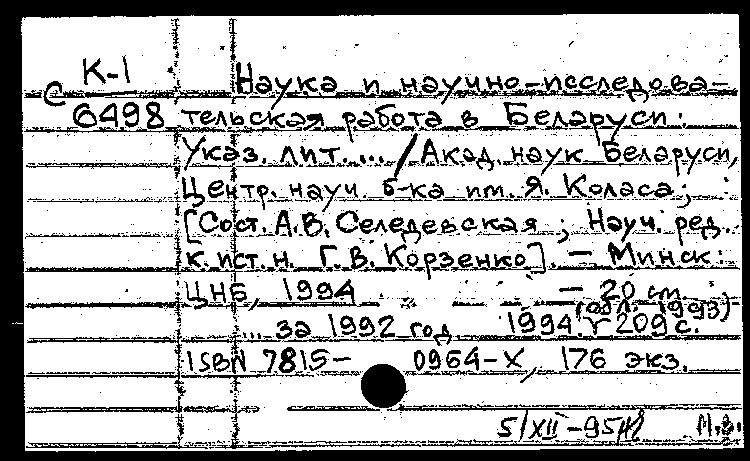 К-1
С 6498
Наука и научно-исследова-
тельская работа в Беларуси:
Указ. лит. ... / Акад. наук Беларуси,
Центр. науч. б-ка им. Я. Коласа;
[Сост. А.В. Селедевская; Науч. ред.
к. ист. н. Г.В. Корзенко]. — Минск:
ЦНБ, 1994 — 20 см.
(обл. 1993)
... за 1992 год 1994. 209 с.
ISBN 7815- 0964-X, 176 экз.
5/XII-95 М.В.